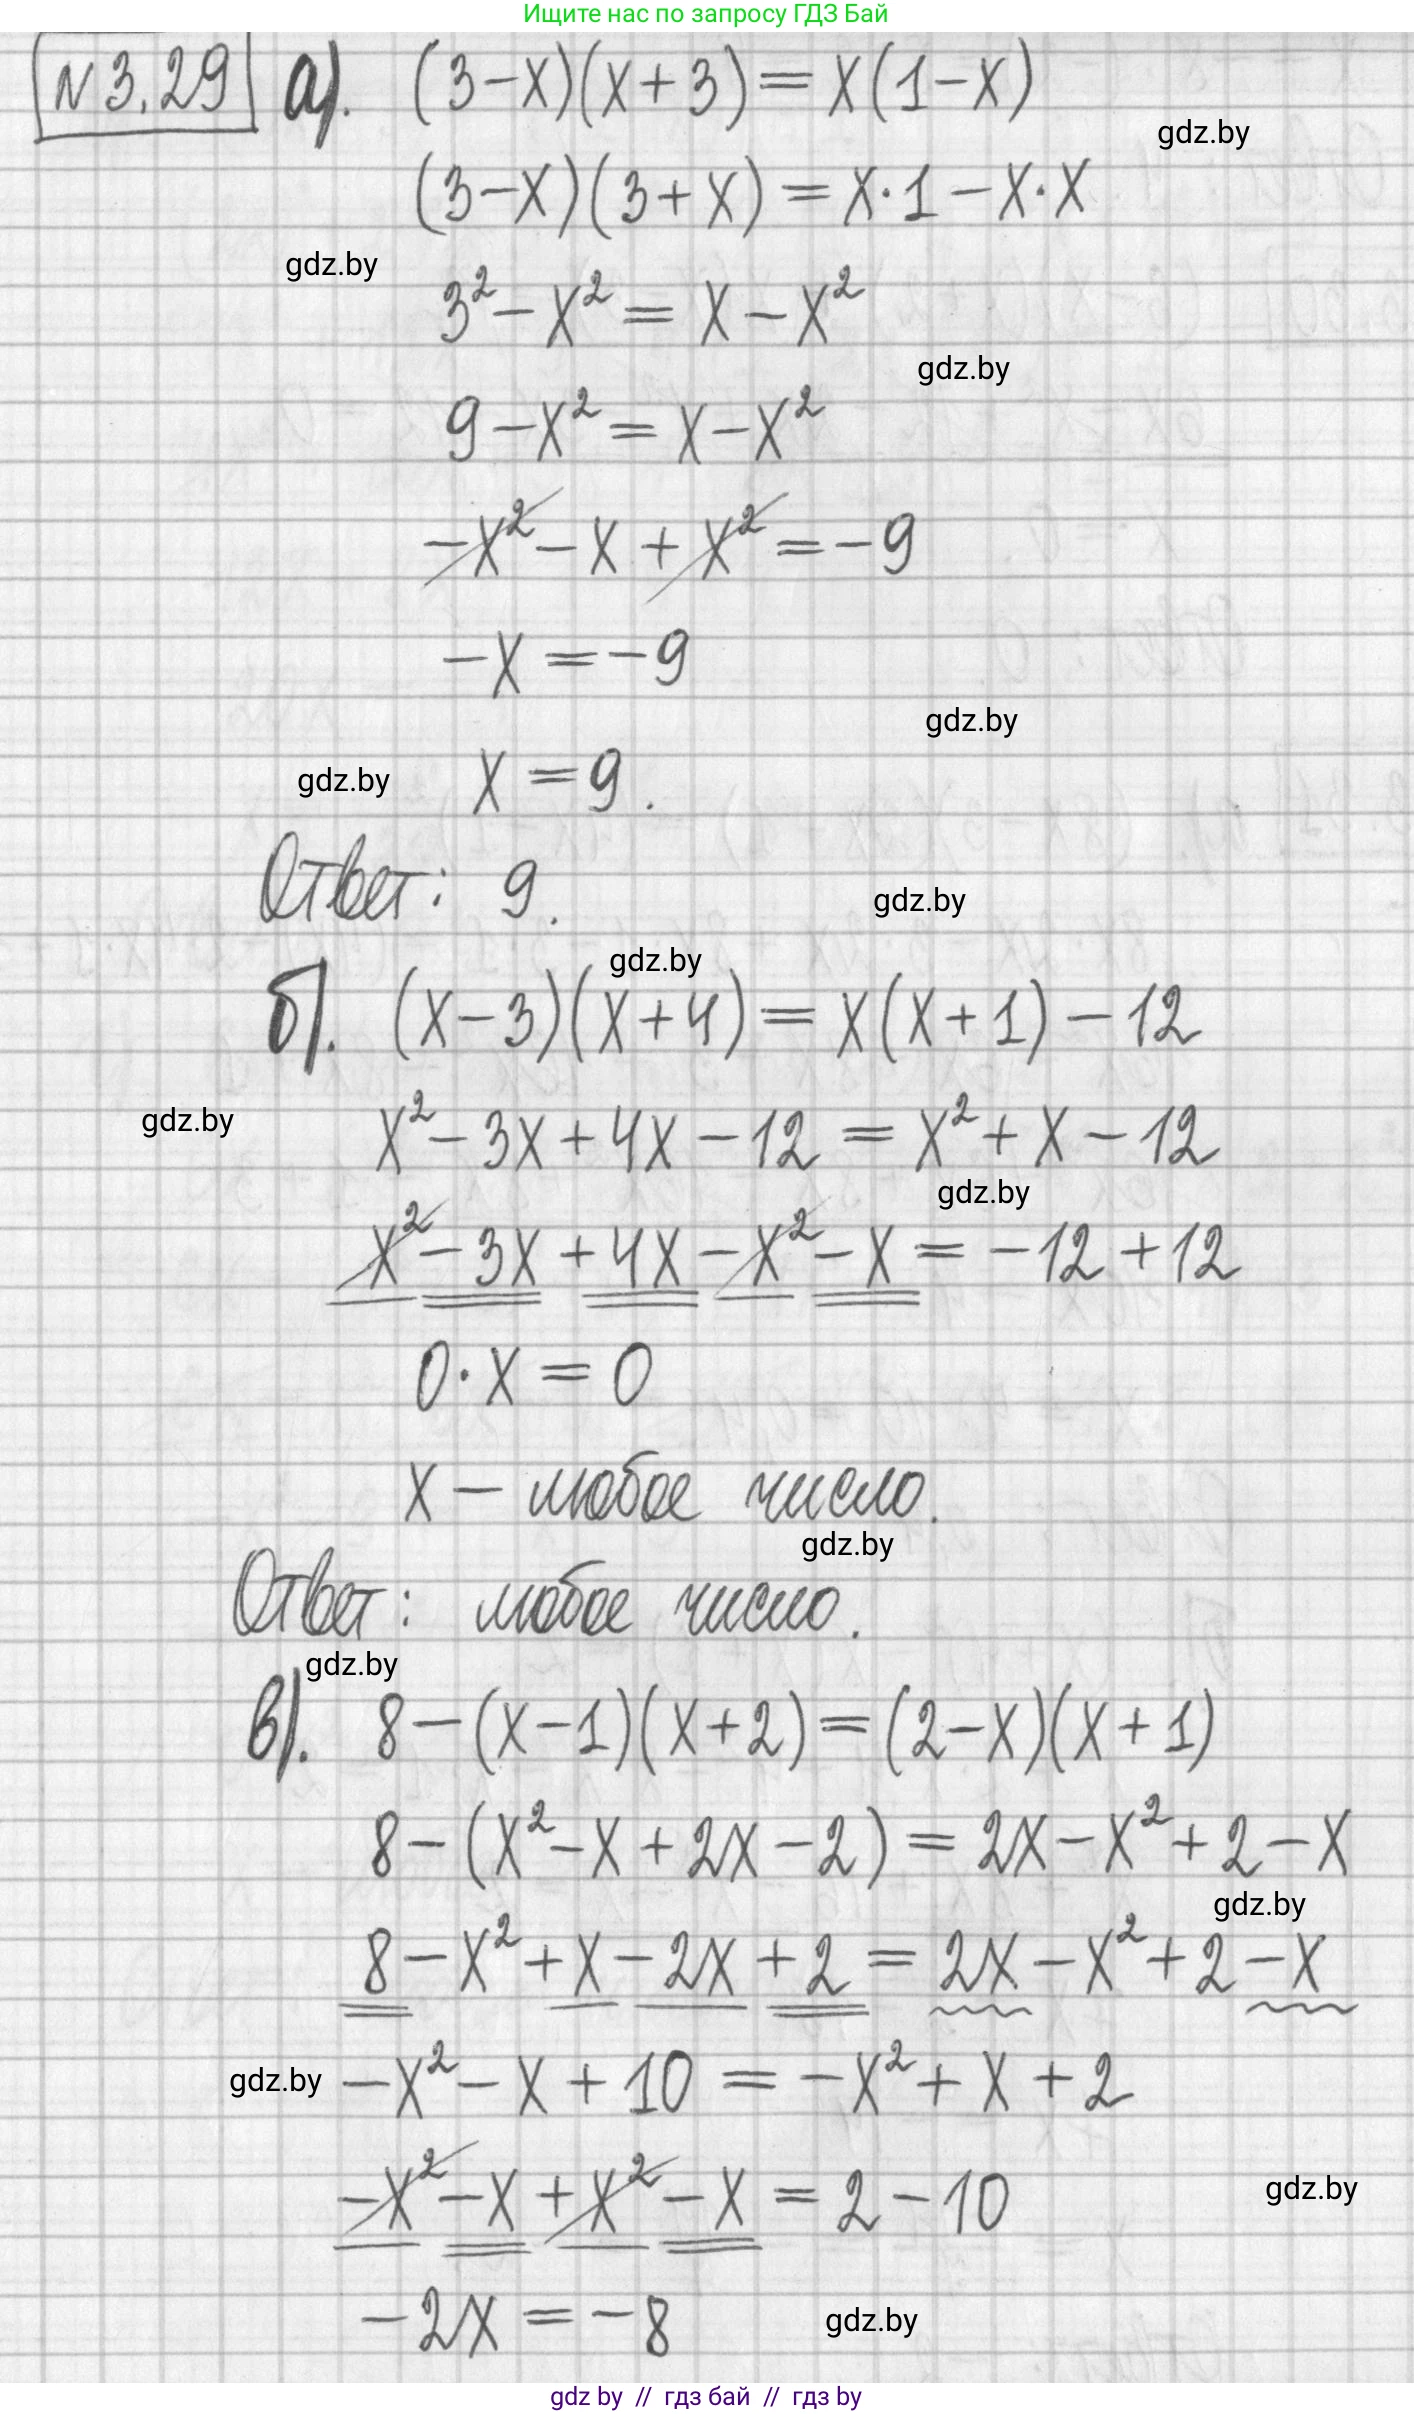 Ищите нас по запросу ГДЗ Бай
№3.29 а). (3-x)(x+3)=x(1-x)
gdz.by
(3-x)(3+x)=x·1-x·x
gdz.by
3²-x²=x-x²
gdz.by
9-x²=x-x²
-x²-x+x²=-9
-x=-9
gdz.by
gdz.by
x=9.
Ответ: 9.
gdz.by
gdz.by
б). (x-3)(x+4)=x(x+1)-12
gdz.by
x²-3x+4x-12=x²+x-12
gdz.by
x²-3x+4x-x²-x=-12+12
0·x=0
x-любое число.
gdz.by
Ответ: любое число.
gdz.by
в). 8-(x-1)(x+2)=(2-x)(x+1)
8-(x²-x+2x-2)=2x-x²+2-x
gdz.by
8-x²+x-2x+2=2x-x²+2-x
gdz.by
-x²-x+10=-x²+x+2
-x²-x+x²-x=2-10
gdz.by
-2x=-8
gdz.by
gdz by // гдз бай // гдз by